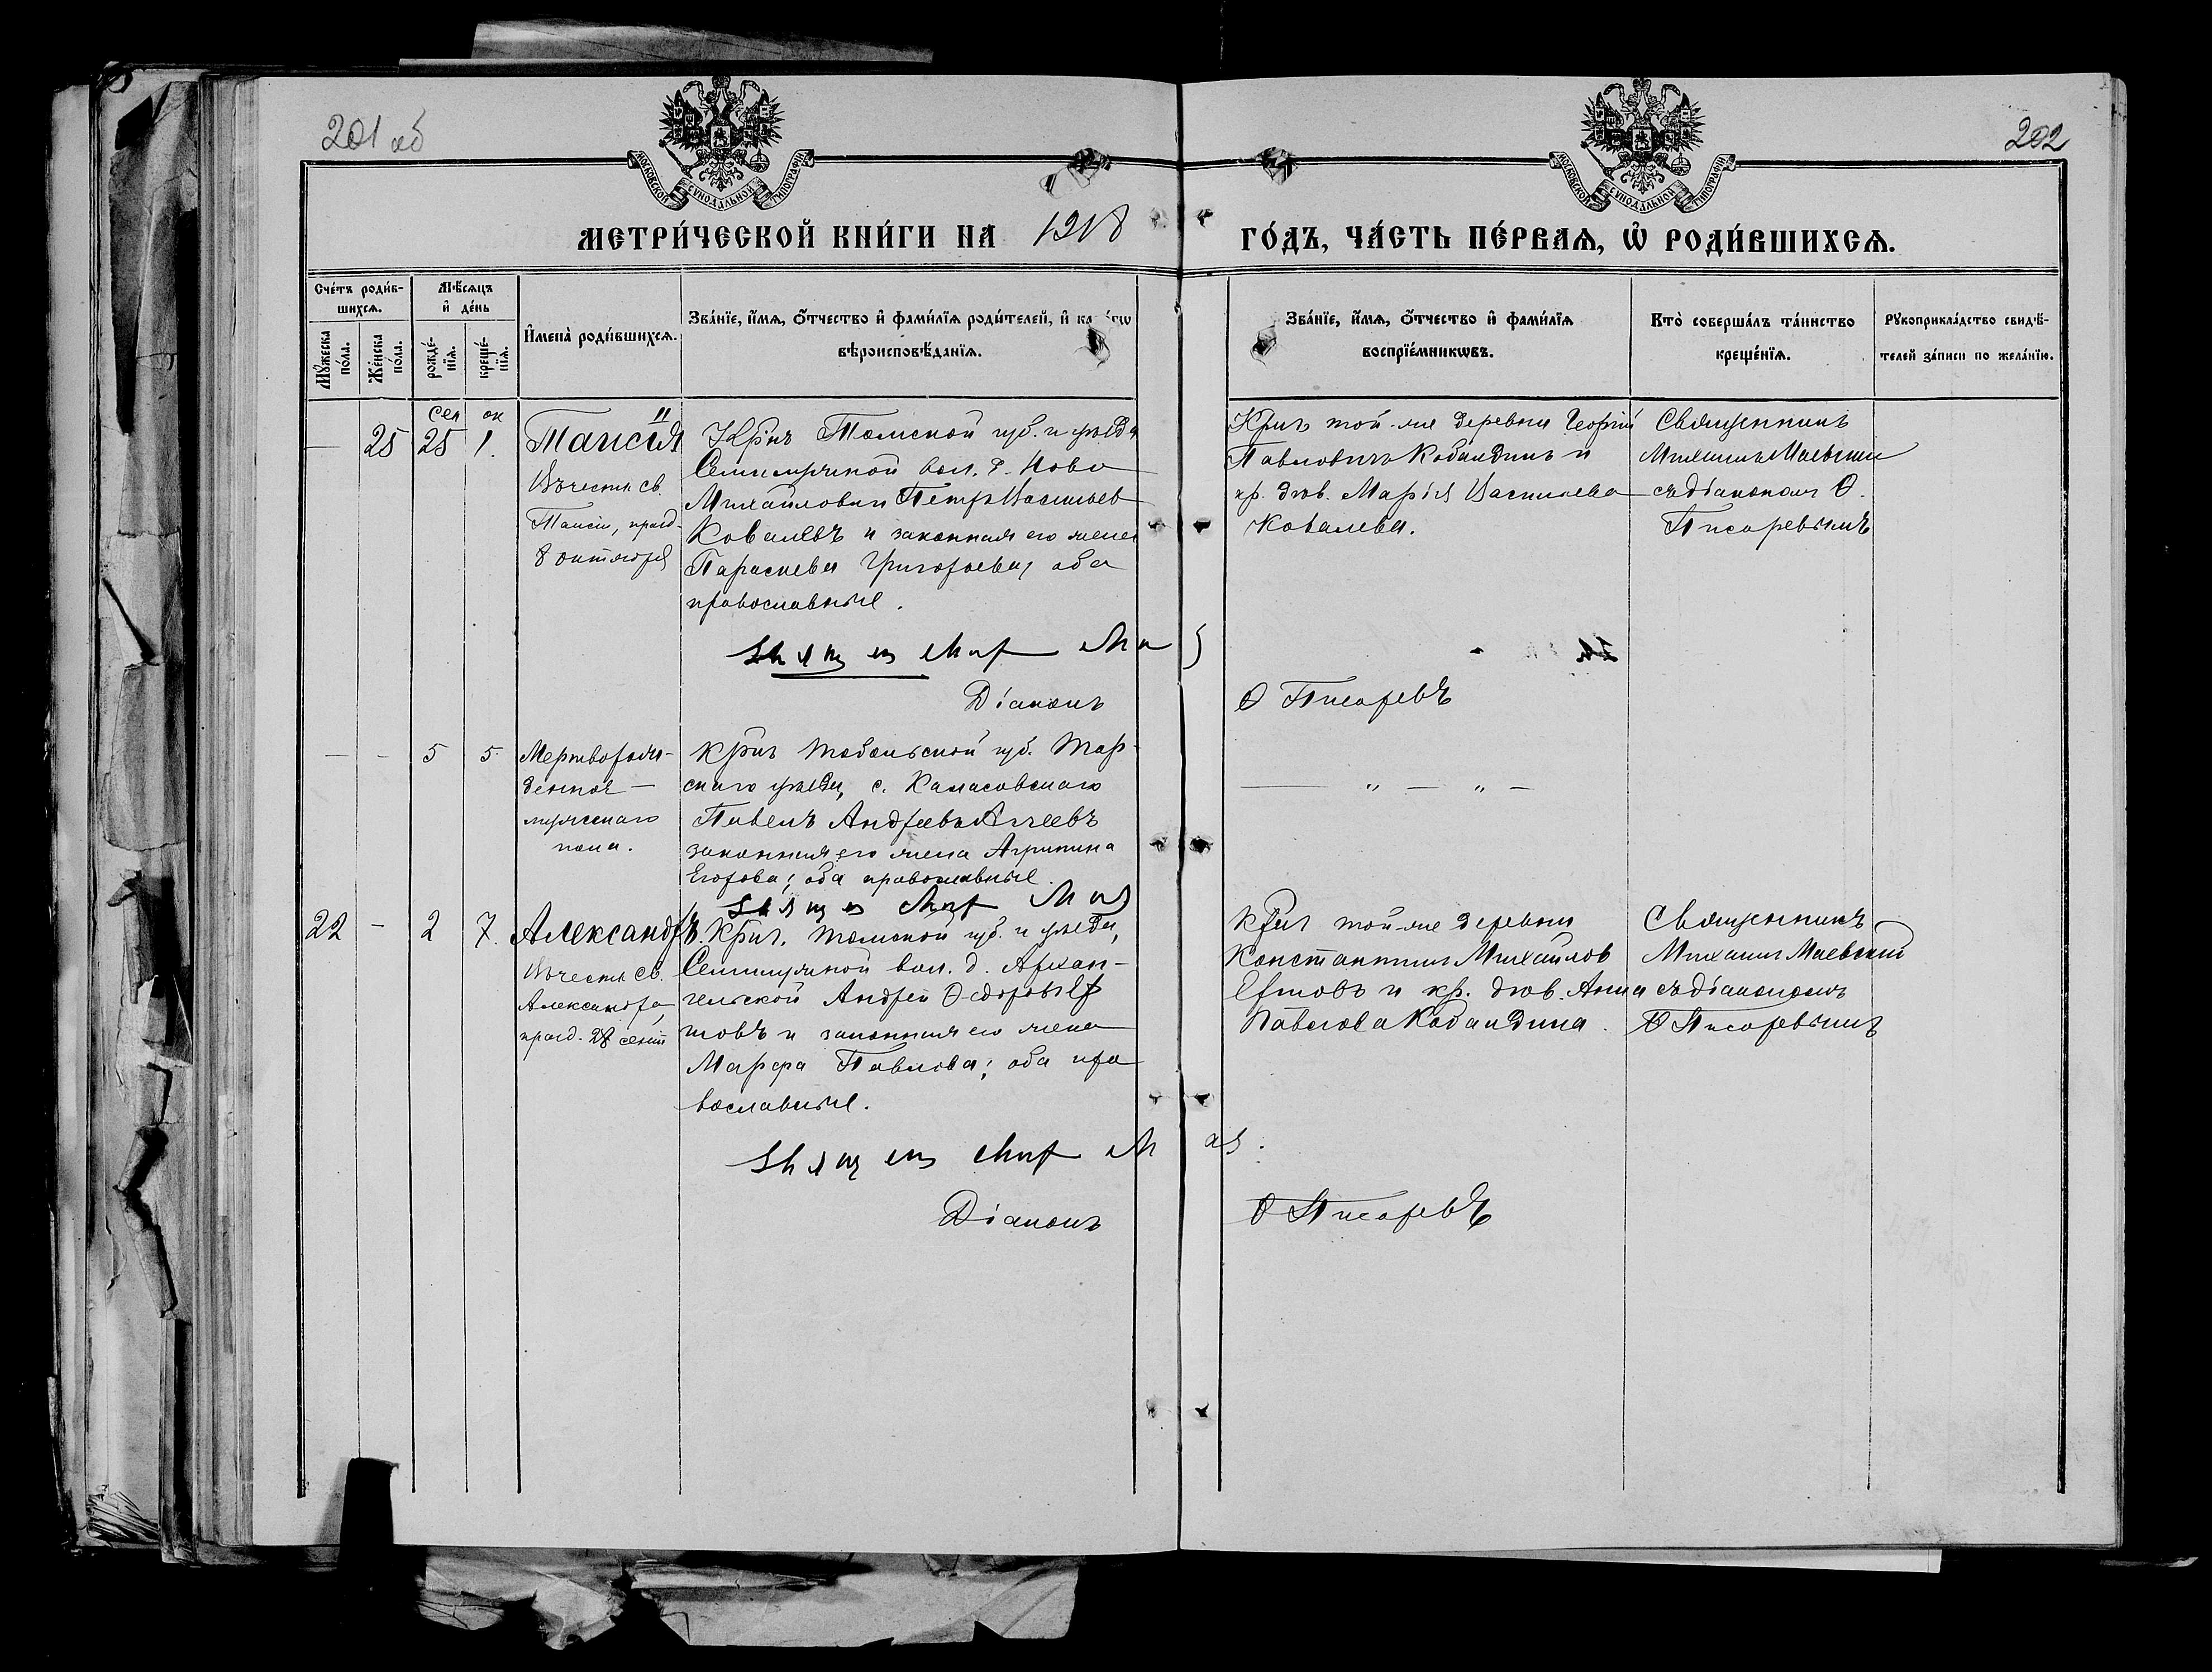 201 об
202
МОСКОВСКОЙ СУНОДАЛЬНОЙ ТИПОГРАФІИ
МОСКОВСКОЙ СУНОДАЛЬНОЙ ТИПОГРАФІИ
МЕТРИ́ЧЕСКОЙ КНИ́ГИ НА 1918
ГО́ДЪ, ЧА́СТЬ ПЕ́РВАѦ, Ѡ҆ РОДИ́ВШИХСѦ.
Сче́тъ роди́в-
шихсѧ.
Мꙋ́жеска
по́ла.
Же́нска
по́ла.
Мѣ́сѧцъ
и҆ де́нь
рожде́-
нїѧ.
креще́-
нїѧ.
И҆мена̀ роди́вшихсѧ.
Зва́нїе, и҆́мѧ, ѻ҆́тчество и҆ фами́лїѧ роди́телей, и҆
вѣроисповѣ́данїѧ.
Зва́нїе, и҆́мѧ, ѻ҆́тчество и҆ фами́лїѧ
воспрїе́мникѡвъ.
Кто̀ соверша́лъ та́инство
креще́нїѧ.
Рꙋкоприкла́дство свидѣ́-
телей за́писи по жела́нїю.
Сен ок
— 25 25 1.
Таисія
Въ честь св.
Таисіи, празд.
8 октября
Кр-нъ Томской губ. и уѣзда
Семилужной вол. д. Ново
Михайловки Петръ Васильев
Ковалевъ и законная его жена
Параскева Григорьева, оба
православные.
Діаконъ
Кр-нъ той-же деревни Георгій
Павловичъ Кобандинъ и
кр. дѣв. Марія Васильева
Ковалева.
Священникъ
Михаилъ Маевскій
съ діакономъ Ѳ.
Писаревымъ
Ѳ Писаревъ
— - 5 5
Мертворож-
денное —
мужескаго
пола.
Кр-нъ Тобольской губ. Тар-
скаго уѣзда, с.
Павелъ Андреевъ
законная его жена Агрипина
Егорова; оба православные.
— " — " —
22 - 2 7.
Александръ.
Въ честь св.
Александра,
празд. 28 сент
Кр-нъ. Томской губ. и уѣзда,
Семилужной вол. д. Архан-
гельской Андрей Ѳедоровъ Еф
товъ и законная его жена
Марфа Павлова; оба пра
вославные.
Діаконъ
Кр-нъ той-же деревни
Константинъ Михайлов
Ефтовъ и кр. дѣв. Анна
Павлова Кобандина.
Священникъ
Михаилъ Маевскій
съ діакономъ
Ѳ Писаревымъ
Ѳ Писаревъ